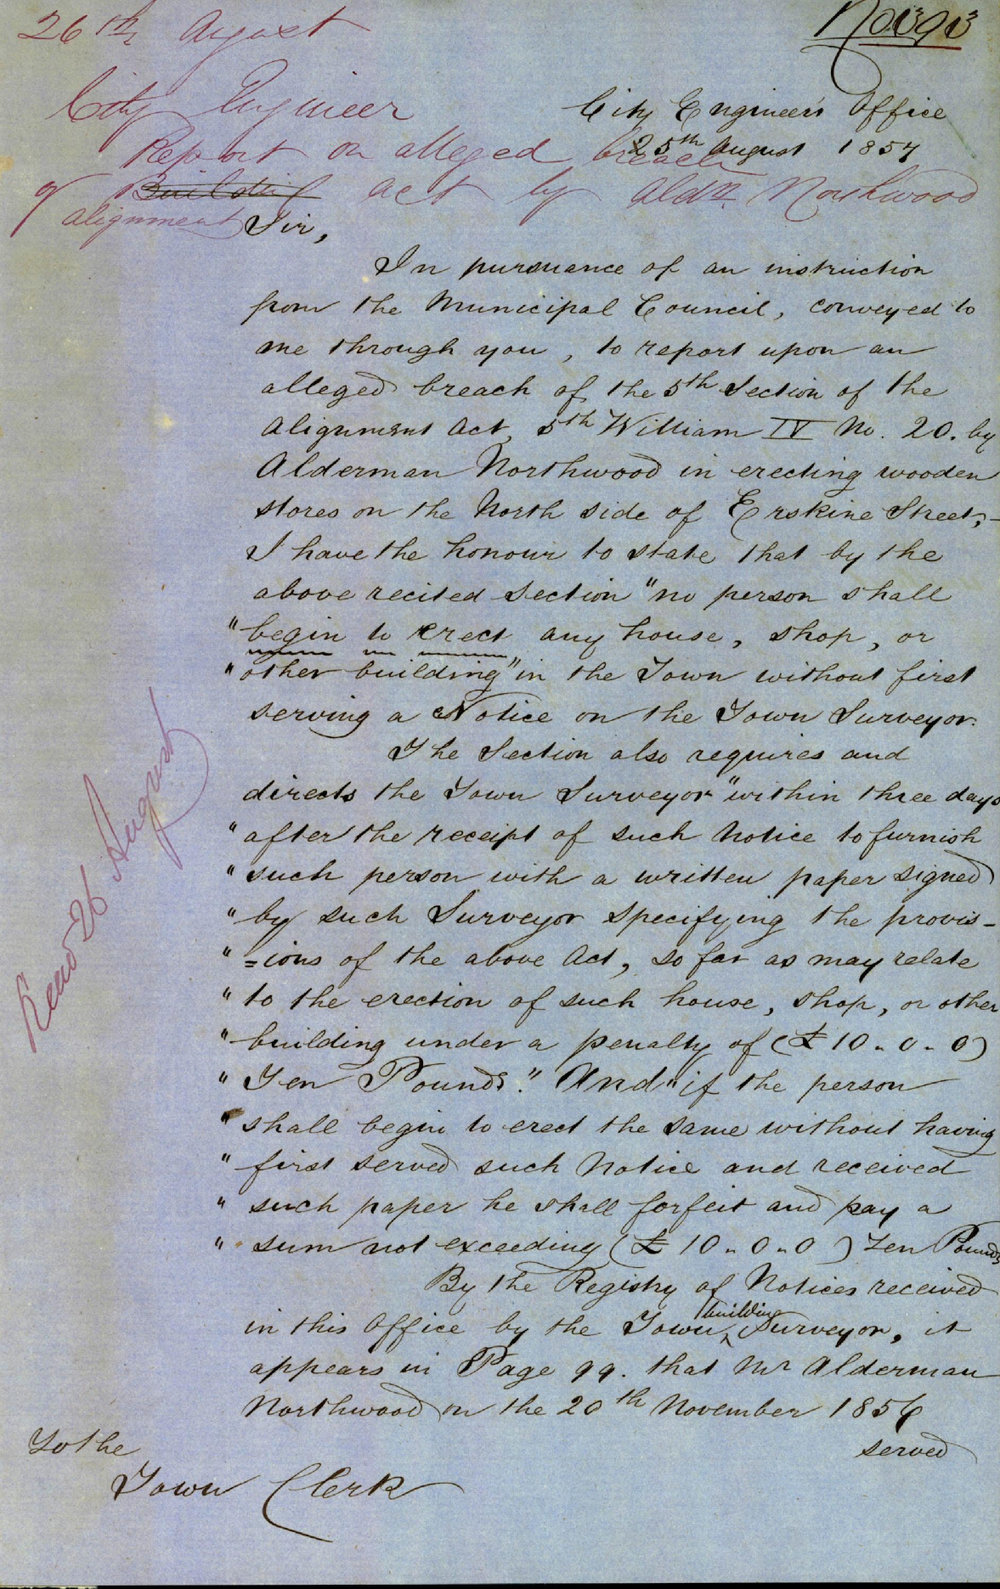 26th August
City Engineer
Report on alleged breach
of Building Act by Aldn. Northwood
alignment
City Engineer's Office
25th August 1857
Sir,
In pursuance of an instruction
from the Municipal Council, conveyed to
me through you, to report upon an
alleged breach of the 5th Section of the
Alignment Act, 5th William IV No. 20. by
Alderman Northwood in erecting wooden
stores on the North side of Erskine Street,—
I have the honour to state that by the
above recited Section "no person shall
"begin to erect any house, shop, or
"other building" in the Town without first
serving a Notice on the Town Surveyor.
The Section also requires and
directs the Town Surveyor "within three days
"after the receipt of such Notice to furnish
"such person with a written paper signed
"by such Surveyor specifying the provis-
"=ions of the above Act, so far as may relate
"to the erection of such house, shop, or other
"building under a penalty of (£10.0.0)
"Ten Pounds." And "if the person
"shall begin to erect the same without having
"first served such Notice and received
"such paper he shall forfeit and pay a
"sum not exceeding (£10.0.0) Ten Pounds
By the Registry of Notices received
in this Office by the Town building Surveyor, it
appears in Page 99. that Mr Alderman
Northwood on the 20th November 1856
served
To the
Town Clerk
26 August